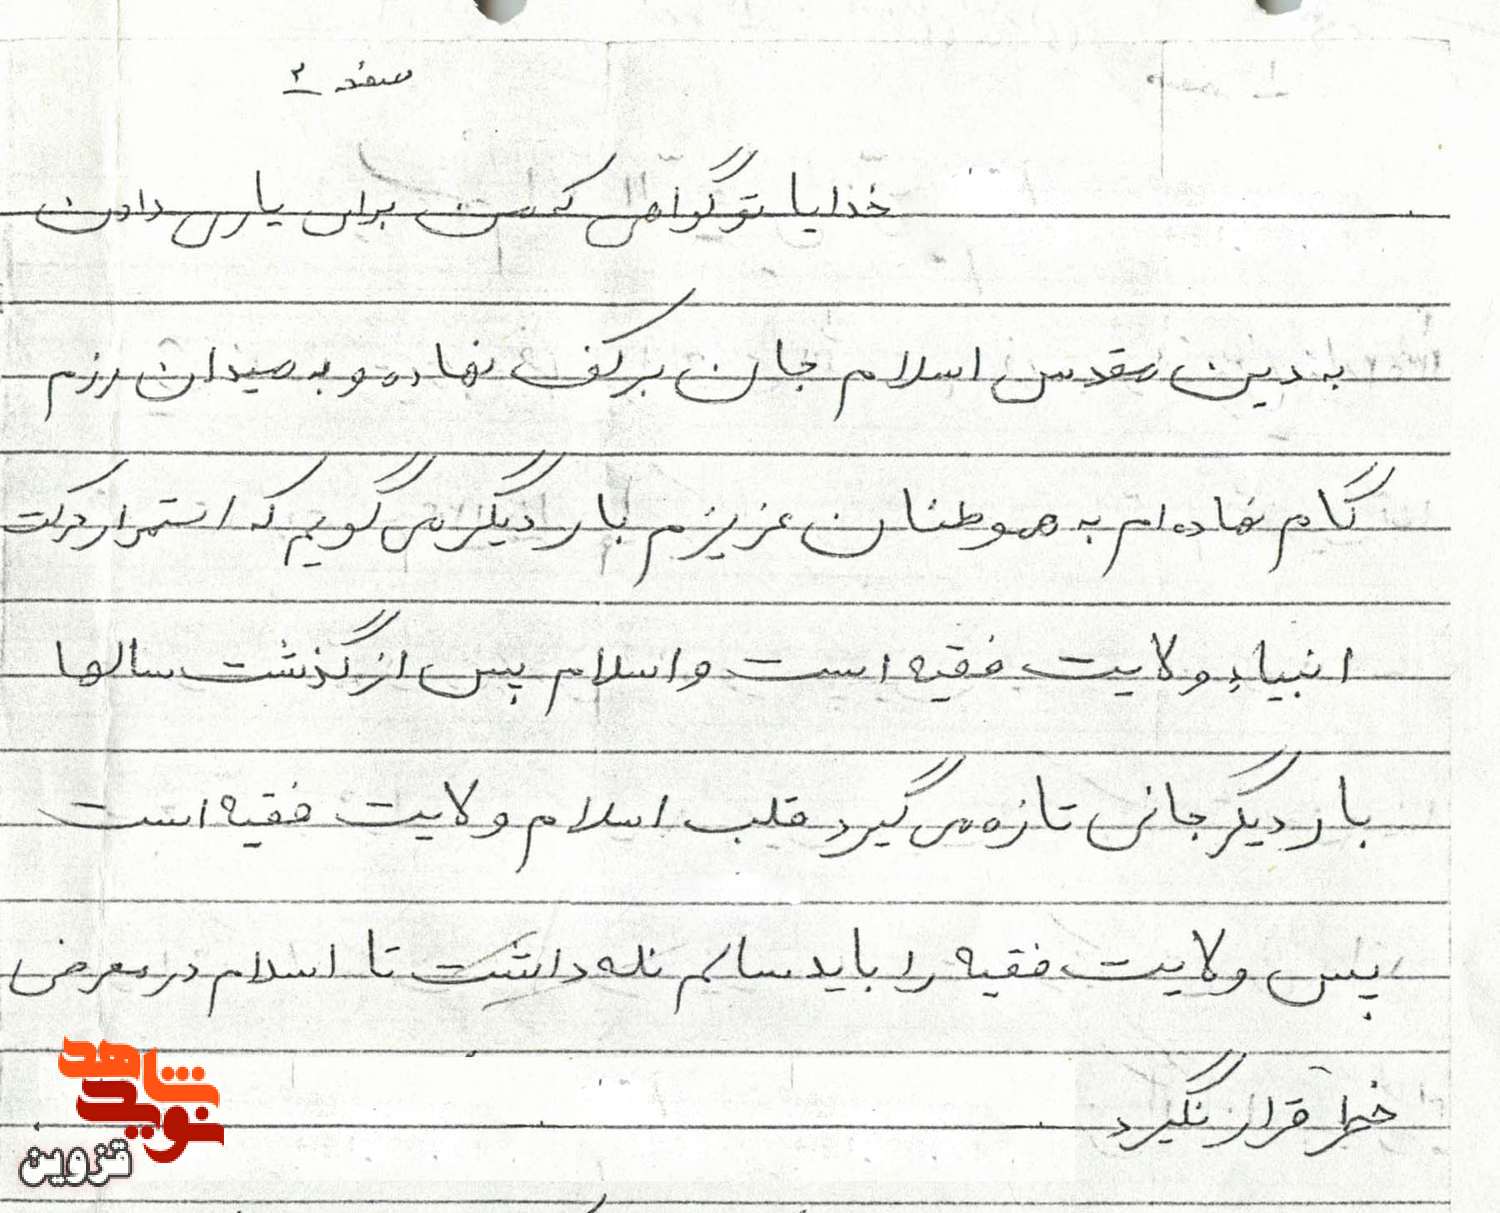 صفحه ۲
خدایا تو گواهی که من برای یاری دادن
به دین مقدس اسلام جان بر کف نهاده و به میدان رزم
گام نهاده ام به هموطنان عزیزم بار دیگر می گویم که استمرار حرکت
انبیاء ولایت فقیه است و اسلام پس از گذشت سالها
بار دیگر جانی تازه می گیرد قلب اسلام ولایت فقیه است
پس ولایت فقیه را باید سالم نگه داشت تا اسلام در معرض
خطر قرار نگیرد
نوید شاهد
قزوین